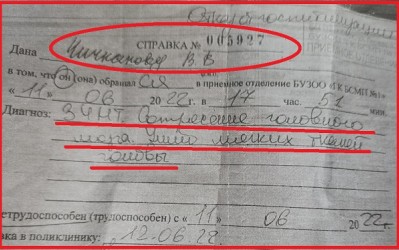 Отказ от госпитализации
СПРАВКА № 005927
Дана В В
в том, что он (она) обращал ся в приемное отделение БУЗОО «ГК БСМП №1»
« 11 » 06 2022 г. в 17 час. 51 мин.
Диагноз: ЗЧМТ. Сотрясение головного
мозга. Ушиб мягких тканей
головы
нетрудоспособен (трудоспособен) с « 11 » 06 2022 г.
в поликлинику: 12.06.22.